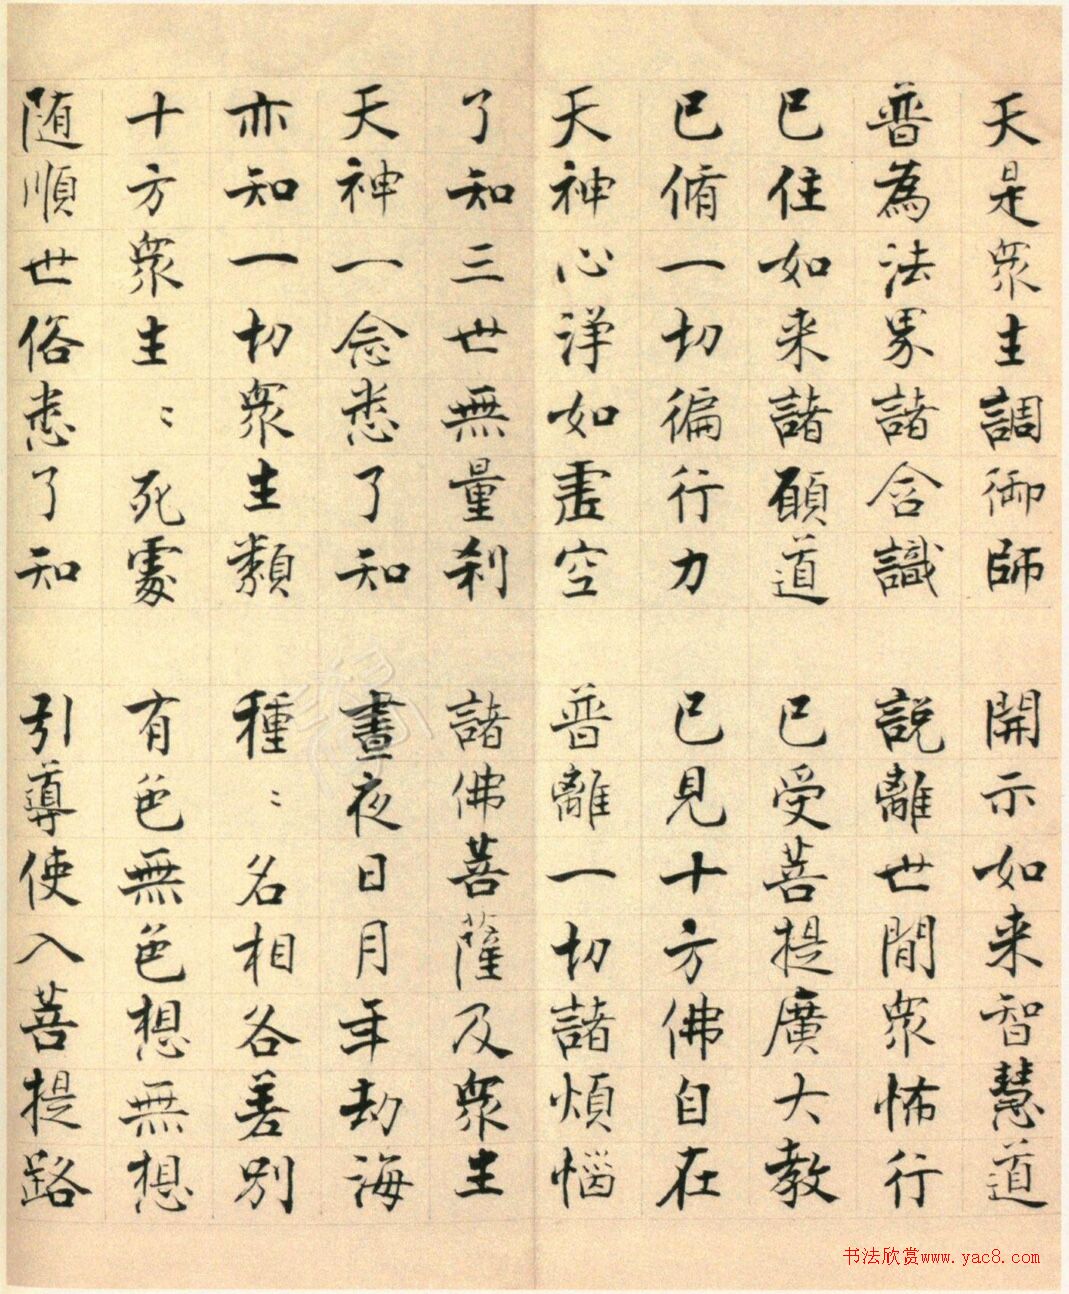 天是眾生調御師　開示如来智慧道
普為法界諸含識　說離世間眾怖行
已住如来諸願道　已受菩提廣大教
已脩一切徧行力　已見十方佛自在
天神心淨如虛空　普離一切諸煩惱
了知三世無量刹　諸佛菩薩及眾生
天神一念悉了知　晝夜日月年劫海
亦知一切眾生類　種〻名相各差別
十方眾生〻死處　有色無色想無想
随順世俗悉了知　引導使入菩提路
书法欣赏www.yac8.com